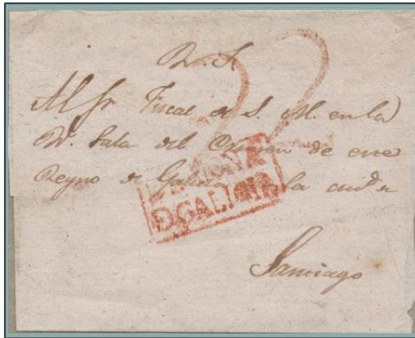 R. S.
Al Sr. Fiscal de S. M. en la
Rl. Sala del Crimen de ese
Reyno de la ciud. de
D GALICIA
Santiago